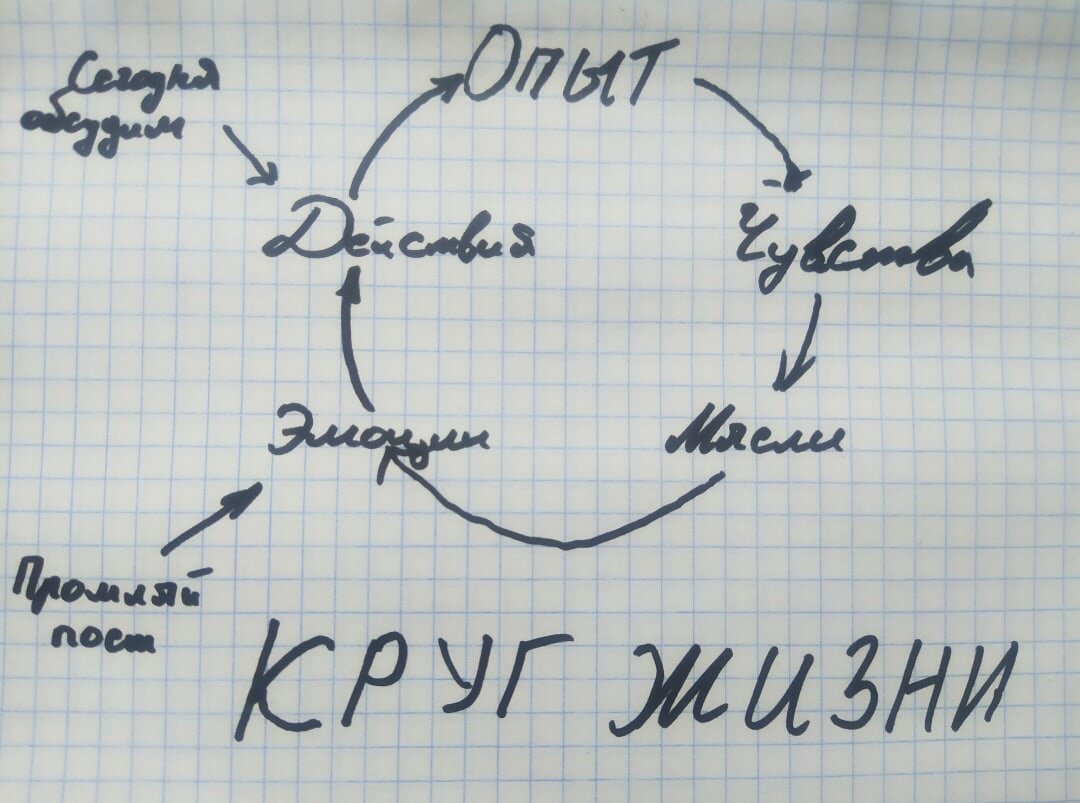 Опыт
Сегодня
обсудим
Действия
Чувства
Эмоции
Мысли
Прошлый
пост
КРУГ ЖИЗНИ